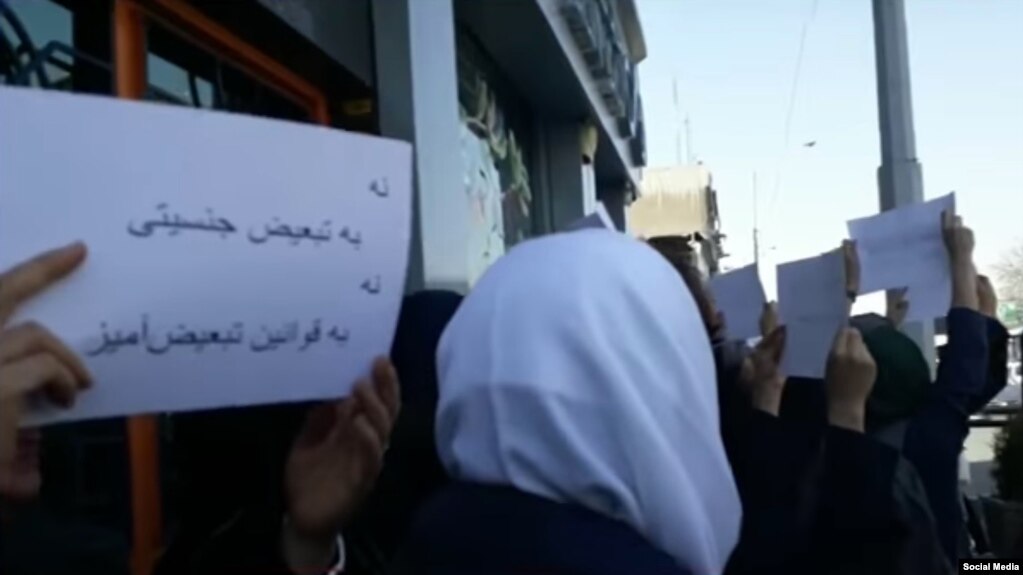 نه
به تبعیض جنسیتی
نه
به قوانین تبعیض‌آمیز
Social Media